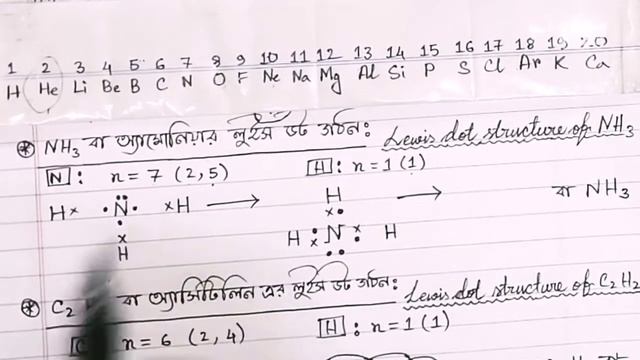 1 2 3 4 5 6 7 8 9 10 11 12 13 14 15 16 17 18 19 20
H He Li Be B C N O F Ne Na Mg Al Si P S Cl Ar K Ca
* NH₃ বা অ্যামোনিয়ার লুইস ডট গঠন: Lewis dot structure of NH₃
N: n = 7 (2, 5) H: n = 1 (1)
H× ·N̈· ×H → H → বা NH₃
×
H
H ×· N ×· H
* C₂ বা অ্যাসিটিলিন এর লুইস ডট গঠন: Lewis dot structure of C₂H₂
n = 6 (2, 4) H: n = 1 (1)